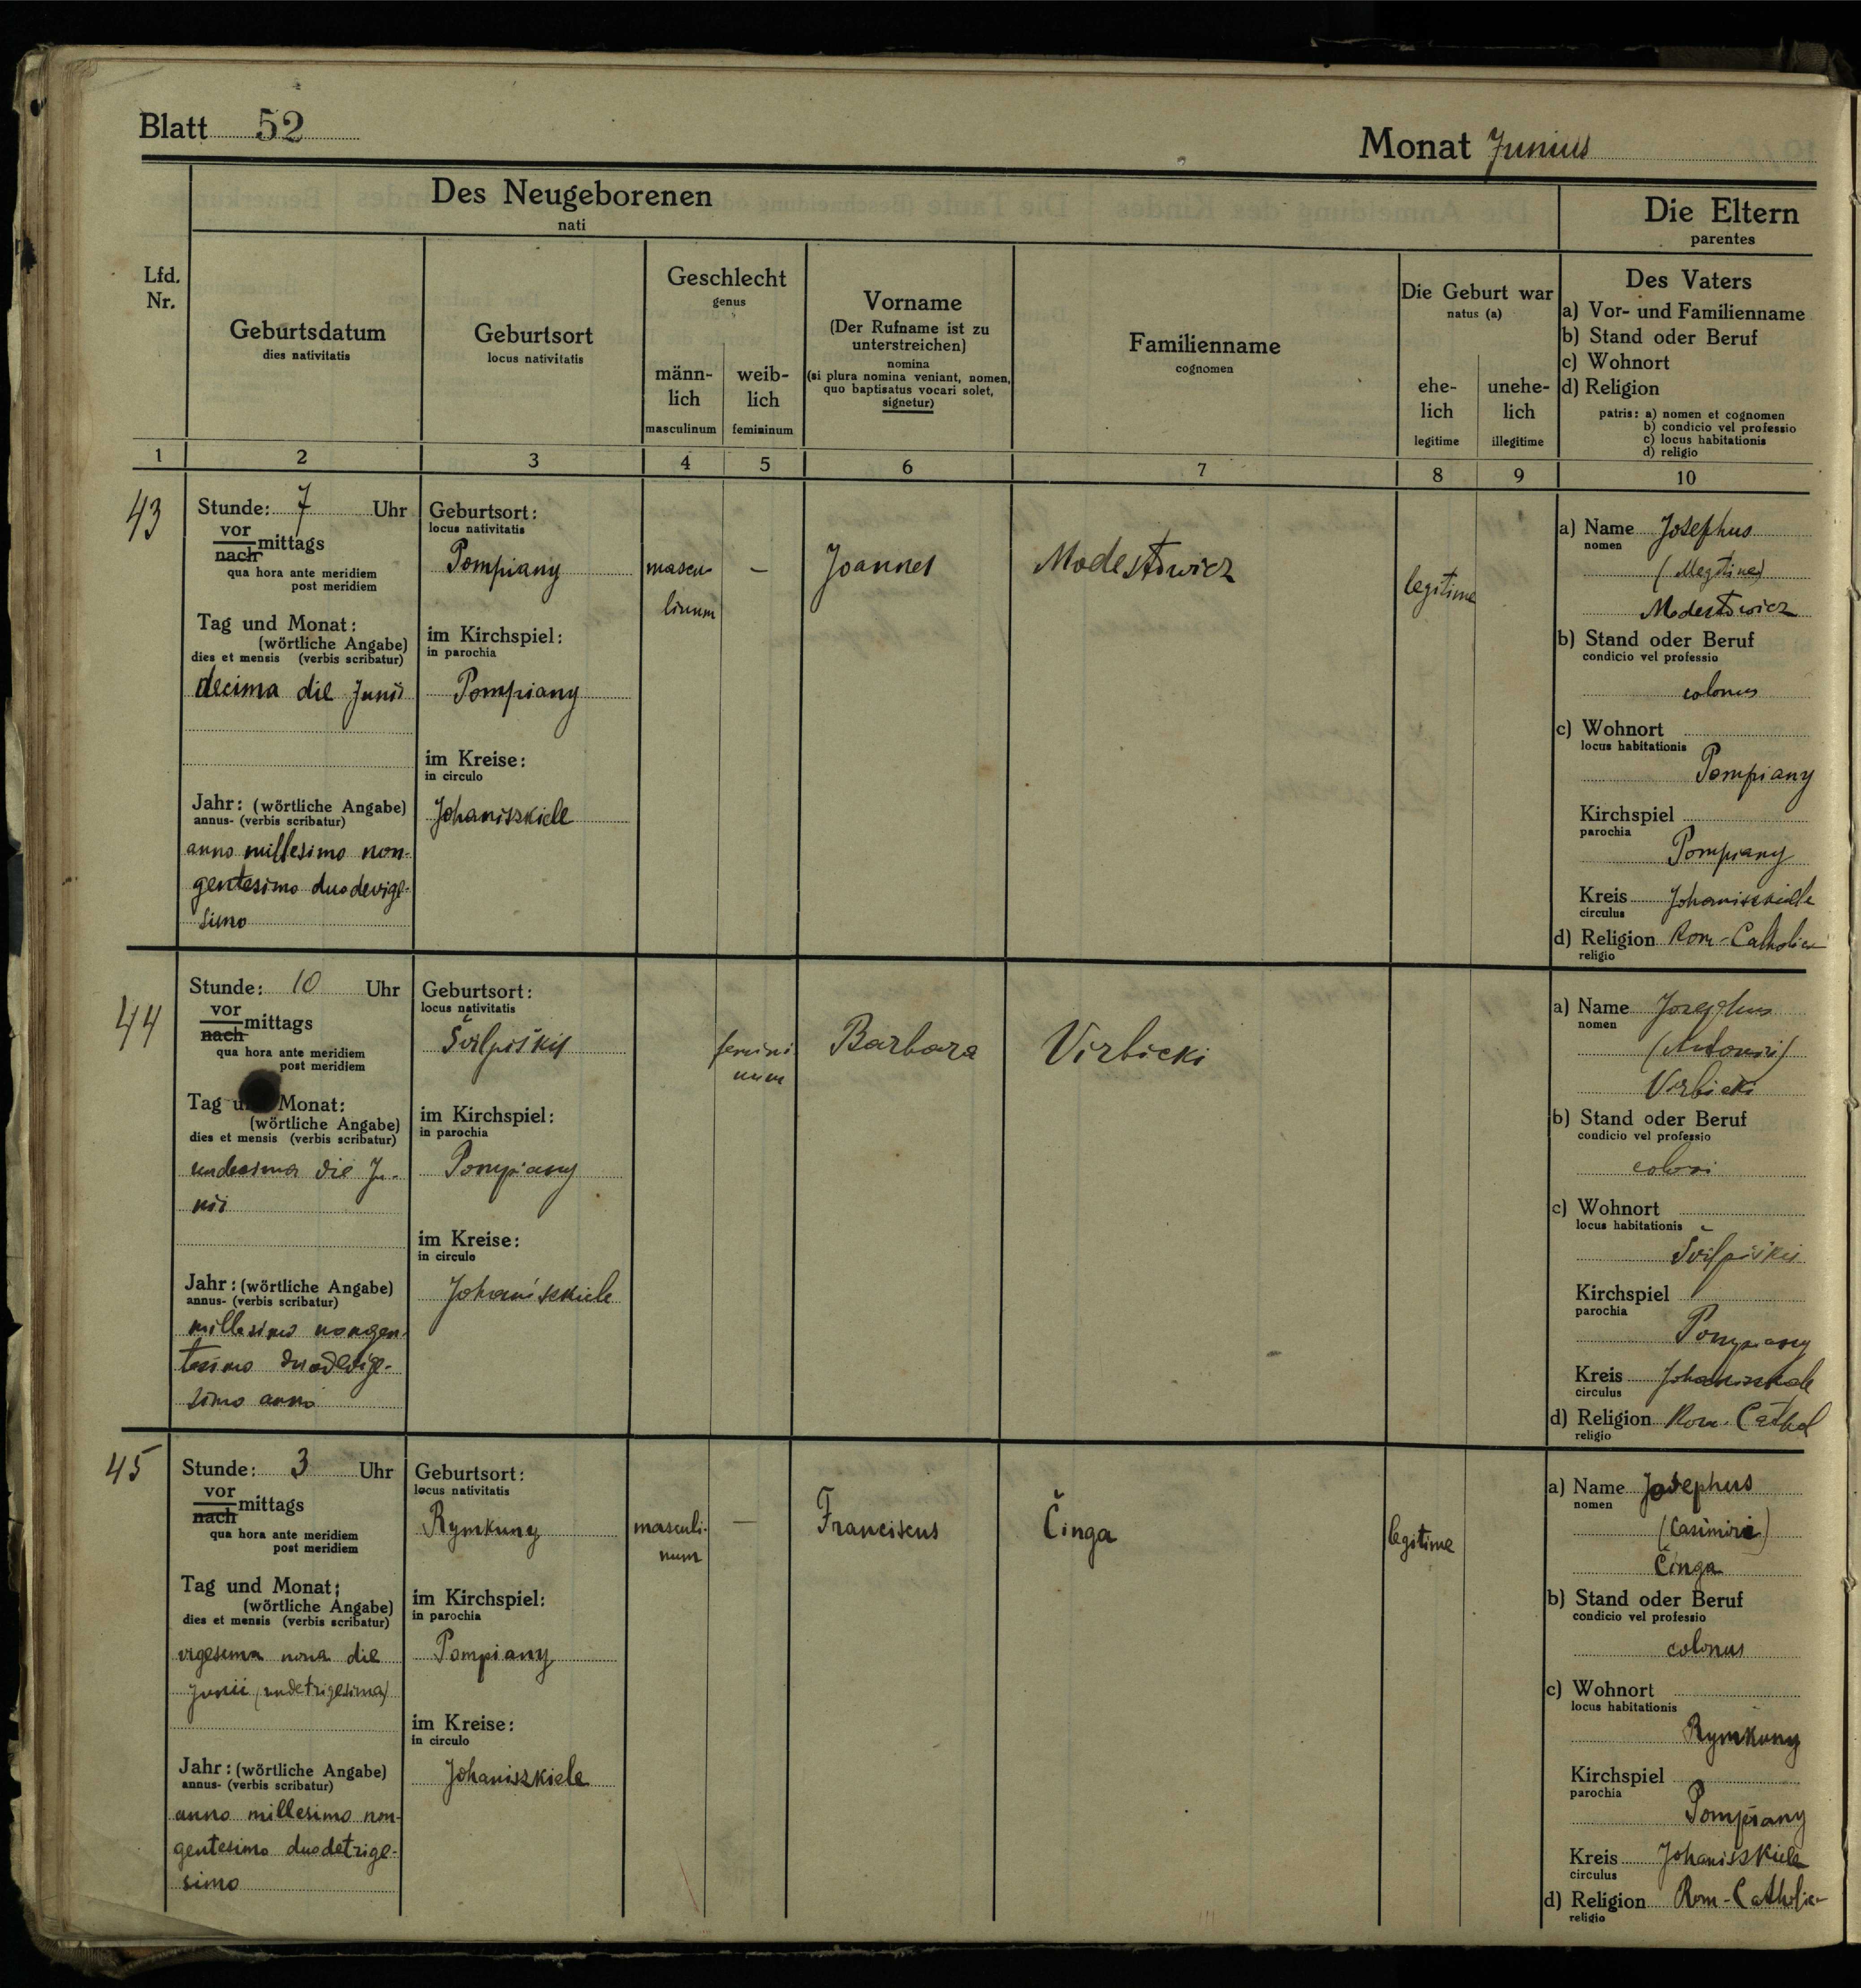 Blatt 52
Monat Junius
Des Neugeborenen
nati
Die Eltern
parentes
Lfd.
Nr.
Geburtsdatum
dies nativitatis
Geburtsort
locus nativitatis
Geschlecht
genus
männ-
lich
masculinum
weib-
lich
femininum
Vorname
(Der Rufname ist zu
unterstreichen)
nomina
(si plura nomina veniant, nomen,
quo baptisatus vocari solet,
signetur)
Familienname
cognomen
Die Geburt war
natus (a)
ehe-
lich
legitime
unehe-
lich
illegitime
Des Vaters
a) Vor- und Familienname
b) Stand oder Beruf
c) Wohnort
d) Religion
patris: a) nomen et cognomen
b) condicio vel professio
c) locus habitationis
d) religio
1 2 3 4 5 6 7 8 9 10
43
Stunde: 7 Uhr
vor
nach mittags
qua hora ante meridiem
post meridiem
Tag und Monat:
(wörtliche Angabe)
dies et mensis (verbis scribatur)
decima die Junii
Jahr: (wörtliche Angabe)
annus- (verbis scribatur)
anno millesimo non-
gentesimo duodevige-
simo
Geburtsort:
locus nativitatis
Pompiany
im Kirchspiel:
in parochia
Pompiany
im Kreise:
in circulo
Johaniszkiele
mascu-
linum
—
Joannes
Modestowicz
legitime
a) Name Josephus
nomen
Modestowicz
b) Stand oder Beruf
condicio vel professio
colonus
c) Wohnort
locus habitationis
Pompiany
Kirchspiel
parochia
Pompiany
Kreis Johaniszkiele
circulus
d) Religion Rom-Catholica
religio
44
Stunde: 10 Uhr
vor
nach mittags
qua hora ante meridiem
post meridiem
Tag u Monat:
(wörtliche Angabe)
dies et mensis (verbis scribatur)
undecima die Ju-
nii
Jahr: (wörtliche Angabe)
annus- (verbis scribatur)
millesimo nongen-
tesimo duodevige-
simo anno
Geburtsort:
locus nativitatis
Švilpiškis
im Kirchspiel:
in parochia
Pompiany
im Kreise:
in circulo
Johaniszkiele
femini-
num
Barbara
Virbicki
a) Name Josephus
nomen
(Antonii)
Virbicki
b) Stand oder Beruf
condicio vel professio
coloni
c) Wohnort
locus habitationis
Švilpiškis
Kirchspiel
parochia
Pompiany
Kreis Johaniszkiele
circulus
d) Religion Rom. Cathol
religio
45
Stunde: 3 Uhr
vor
nach mittags
qua hora ante meridiem
post meridiem
Tag und Monat:
(wörtliche Angabe)
dies et mensis (verbis scribatur)
vigesima nona die
Junii (undetrigesima)
Jahr: (wörtliche Angabe)
annus- (verbis scribatur)
anno millesimo non-
gentesimo duodetrige-
simo
Geburtsort:
locus nativitatis
Rymkuny
im Kirchspiel:
in parochia
Pompiany
im Kreise:
in circulo
Johaniszkiele
masculi-
num
—
Franciscus
Činga
legitime
a) Name Josephus
nomen
(Casimiri)
Činga
b) Stand oder Beruf
condicio vel professio
colonus
c) Wohnort
locus habitationis
Rymkuny
Kirchspiel
parochia
Pompiany
Kreis Johaniszkiele
circulus
d) Religion Rom-Catholica
religio